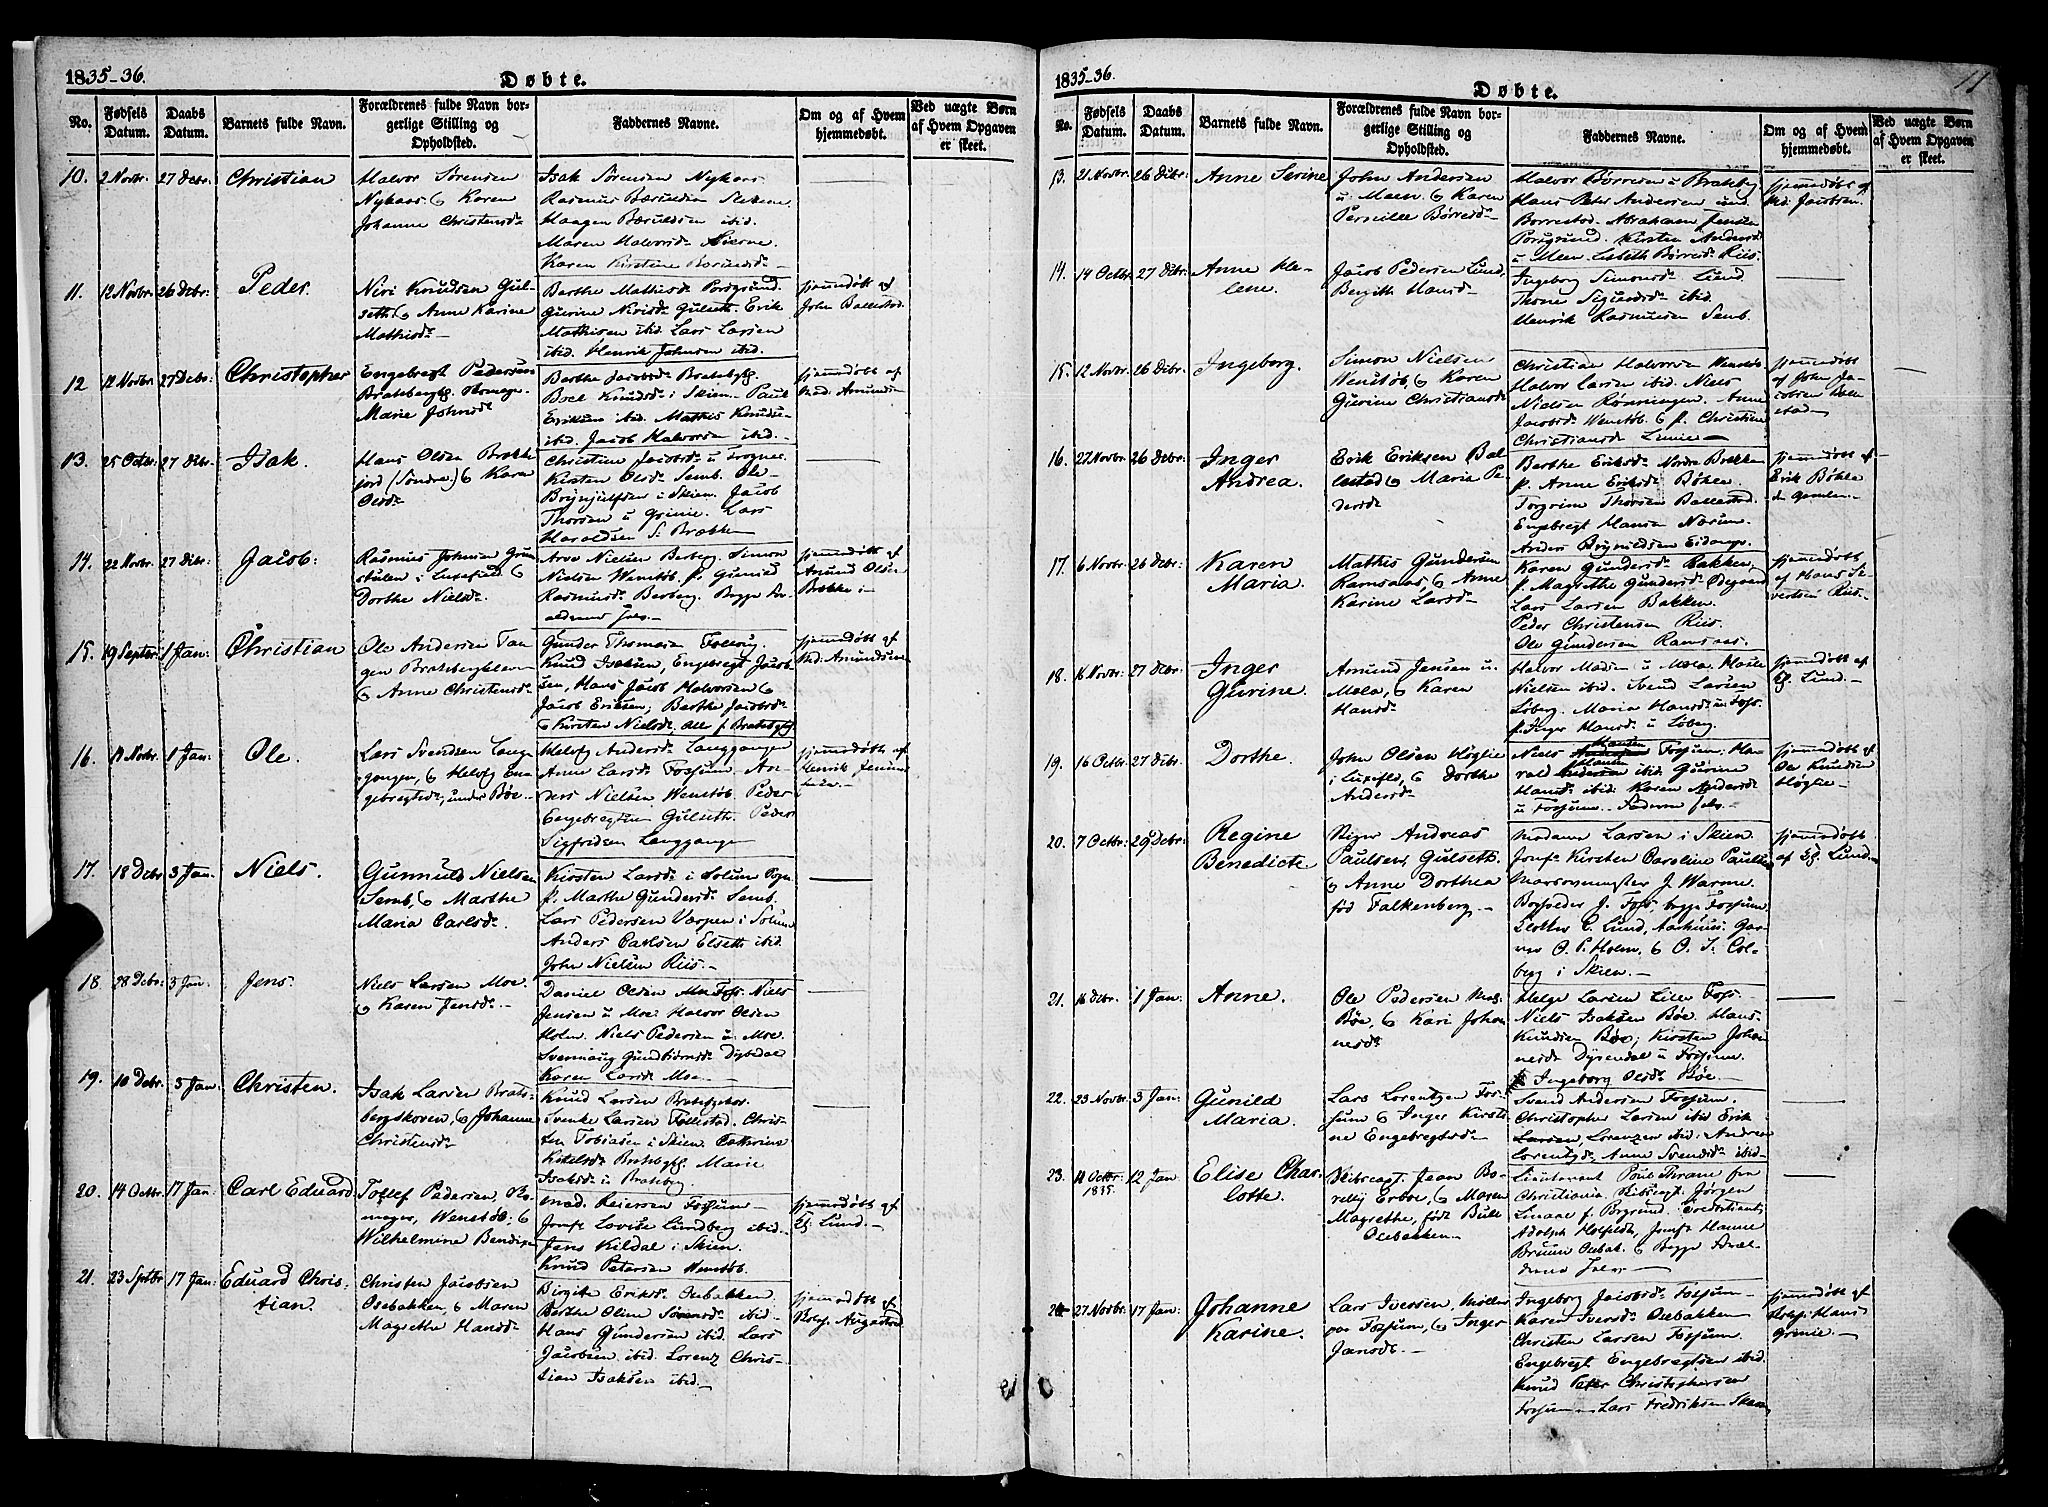 1835-36.
Døbte.
No.
Fødsels Datum.
Daabs Datum.
Barnets fulde Navn.
Forældrenes fulde Navn borgerlige Stilling og Opholdsted.
Faddernes Navne.
Om og af Hvem hjemmedøbt.
Ved uægte Børn af Hvem Opgaven er skeet.
10. 2 Novbr. 27 Debr. Christian
Halvor Sørensen
Nykaas & Karen
Johanne Christensd.
Isak Sørensen Nykaas
Haagen ibid.
Maren Halvorsd.
Karen Kirstine
11. 12 Novbr. 26 Debr. Peder.
Niri Knudsen Gulseth & Anne Karine
Mathisd.
Berthe Mathisd. Porsgrund.
Gurine Nirisd. Gulseth. Erik
Mathisen ibid. Lars Larsen
ibid. Henrik Johnsen ibid.
hjemmedøbt af
John Ballestad
12 12 Novbr. 27 Debr. Christopher
Engebregt Pedersen
Marie Johnsd.
Berthe Jacobsd.
Boel Knudsd. i Skien. Paul
Eriksen ibid. Mathis Knudsen
ibid. Jacob Halvorsen ibid.
hjemmedøbt af
Mad. Amundsen
13. 25 Octbr. 27 Debr. Isak.
Hans Olsen
(Søndre) & Karen
Olsd.
Kirsten Olsd. Semb. Ole
Brynjulfsen i Skien. Jacob
Thorsen u Grinie. Lars
Haraldsen S. Brække
14. 22 Novbr. 27 Debr. Jacob.
Rasmus Johnsen
i Luxefjeld &
Dorthe Nielsd.
Nielsen Berberg. Simon
Nielsen Wenstøb. p. Gunild
Rasmusd. Berberg. Begge
hjemmedøbt af
Amund Olsen
Brække
15. 19 Septbr. 1 Jan. Christian
Ole Andersen Tangen
& Anne Christensd.
Gunder Thomesen
Knud Isaksen, Engebregt Jacobsen, Hans Jacob Halvorsen &
Jacob Eriksen; Berthe Jacobsd.
& Kirsten Nielsd. alle
hjemmedøbt af
Mad. Amundsen
16. 19 Novbr. 1 Jan. Ole.
Lars Svendsen Langgangen, & Helvig Engebregtsd, under Bøe.
Helvig Andersd. Langgangen
Anne Larsd. Fossum. Anders Nielsen Wenstøb. Peder
Engebregtsen Gulseth. Peder
Sigfridsen Langgangen
hjemmedøbt af
Henrik
17. 18 Debr. 3 Jan. Niels.
Gunnuld Nielsen
Semb, & Marthe
Maria Carlsd.
Kirsten Larsd. i Solum
p. Marthe Gundersd. Semb.
Lars Pedersen Varpen i Solum
Anders Carlsen Elseth ibid.
John Nielsen Riis.
18. 28 Debr. 3 Jan. Jens.
Niels Larsen Moe
& Karen Jensd.
Daniel Olsen Niels
Jensen u Moe. Halvor Olsen
Holm. Niels Pedersen u. Moe.
Karen Larsd. Moe.
19. 10 Debr. 3 Jan. Christen.
Isak Larsen Bratsbergskoven, & Johanne
Christensd.
Knud Larsen
Svenke Larsen Follestad. Christen Tobiasen i Skien. Cathrine
Marie
Isaksd. u Bratsberg
20. 14 Octbr. 17 Jan. Carl Eduard
Tollef Pedersen,
Wenstøb, &
Wilhelmine
Mad. Reiersen Fossum
Jomf. Lovise Lundberg ibid.
Jens Kildal i Skien.
Knud Petersen Wenstøb.
hjemmedøbt af
Lund.
21. 23 Septbr. 17 Jan. Eduard Christian.
Christen Jacobsen
Osebakken, & Maren
Magrethe Hansd.
Birgite Eriksd. Osebakken.
Berthe Oline ibid.
Hans Gundersen ibid. Lars
Jacobsen ibid. Lorenz Christian Isaksen ibid.
hjemmedøbt af
1835-36.
Døbte.
11
No.
Fødsels Datum.
Daabs Datum.
Barnets fulde Navn.
Forældrenes fulde Navn borgerlige Stilling og Opholdsted.
Faddernes Navne.
Om og af Hvem hjemmedøbt.
Ved uægte Børn af Hvem Opgaven er skeet.
13. 21 Novbr. 26 Debr. Anne Serine
John Andersen
u. Meen. & Karen
Pernille Børresd.
Halvor Børresen u
Hans Peter Andersen
Borrestad. Abraham Jensen
Porsgrund. Kirsten Andersd.
u Meen. Lisbeth Børresd. Riis.
hjemmedøbt af
Md. Jacobsen.
14. 14 Octbr. 27 Debr. Anne Helene.
Jacob Pedersen Lund,
Bergith Hansd.
Ingeborg Simonsd. Lund
Thone ibid.
Henrik Rasmusen Semb.
15. 12 Novbr. 26 Debr. Ingeborg.
Simon Nielsen
Wenstøb, & Karen
Gurine Christiansd.
Christian Halvorsen Wenstøb.
Halvor Larsen ibid. Niels
Nielsen Rønningen. Anne
Jacobsd. Wenstøb & p. Christine
Christiansd.
hjemmedøbt
af John Jacobsen
16. 27 Novbr. 26 Debr. Inger Andrea.
Erik Eriksen Ballestad & Maria Pedersd.
Berthe Eriksd. Nordre Brække
p. Anne Eriksd. Bøhle.
Torgrim Thorsen Ballestad.
Engebregt Hansen
Anders Brynildsen Eidanger.
hjemmedøbt af
Erik Bøhle
17. 6 Novbr. 26 Debr. Karen Maria.
Mathis Gundersen
Ramsaas, & Anne
Karine Larsd.
Karen Gundersd. Bakken,
p. Magrethe Gundersd. Ødegaard
Lars Larsen Bakken.
Peder Christensen Riis.
Ole Gundersen Ramsaas.
hjemmedøbt
af Hans Severtsen Riis.
18. 16 Novbr. 27 Debr. Inger Gurine.
Amund Jensen u.
Mela, & Karen
Hansd.
Halvor u Mela.
Nielsen ibid. Svend Larsen
Løberg. Maria Hansd. u Foss.
p. Inger Hansd. u Løberg.
hjemmedøbt af
Lund.
19. 16 Octbr. 27 Debr. Dorthe.
John Olsen Høglie
i Luxefld, & Dorthe
Andersd.
Niels Hansen Fossum. Harald Hansen ibid. Gurine
Hansd. ibid. Karen Andersd.
u Fossum. Faderen selv.
hjemmedøbt af
Ole Knudsen
Høglie.
20. 7 Octbr. 29 Debr. Regine Benedicte.
Andreas
Paulsen, Gulseth.
& Anne Dorthea
fød Falkenberg.
Madame Larsen i Skien
Jomf. Kirsten Caroline Paulsen
Masovnmester J. Warme.
J. Foss, begge Fossum.
E. Lund,
O. P. Holm, & O. J. Colberg i Skien.
hjemmedøbt
af Lund.
21. 16 Debr. 1 Jan. Anne.
Ole Pedersen
Bøe, & Kari Johannesd.
Helge Larsen Lille Foss.
Niels Isaksen Bøe. Hans
Knudsen Bøe; Kirsten Johannesd. Dyrendal u Fossum.
Ingeborg Olsd. Bøe.
22. 23 Novbr. 3 Jan. Gunild Maria.
Lars Lorentzen Fossum & Inger Kirstine Engebregtsd.
Svend Andersen Fossum.
Christopher Larsen ibid Erik
Larsen, Lorenzen ibid. Andrea
Lorentzd. Anne Svendsd. ibid.
23. 11 Octbr. 1835. 12 Jan. Elise Charlotte.
Skibscapt. Jean
& Maren
Magrethe, født Bull
Osebakken.
Lieutenant fra
Christiania. Skibscapt. Jørgen
f. Porsgrund.
Adolph Jomf. Hanne
Bruun Osebak. & Begge Forældrene selv.
24. 27 Novbr. 17 Jan. Johanne Karine.
Lars Iversen, Møller
paa Fossum, & Inger
Jansd.
Ingeborg Jacobsd. Fossum
Karen Iversd. Osebakken
Christen Larsen Fossum.
Engebregt Engebregtsen ibid.
Knud Peter Christophersen
Fossum. Lars Fredriksen
hjemmedøbt af
Hans
Grinie.